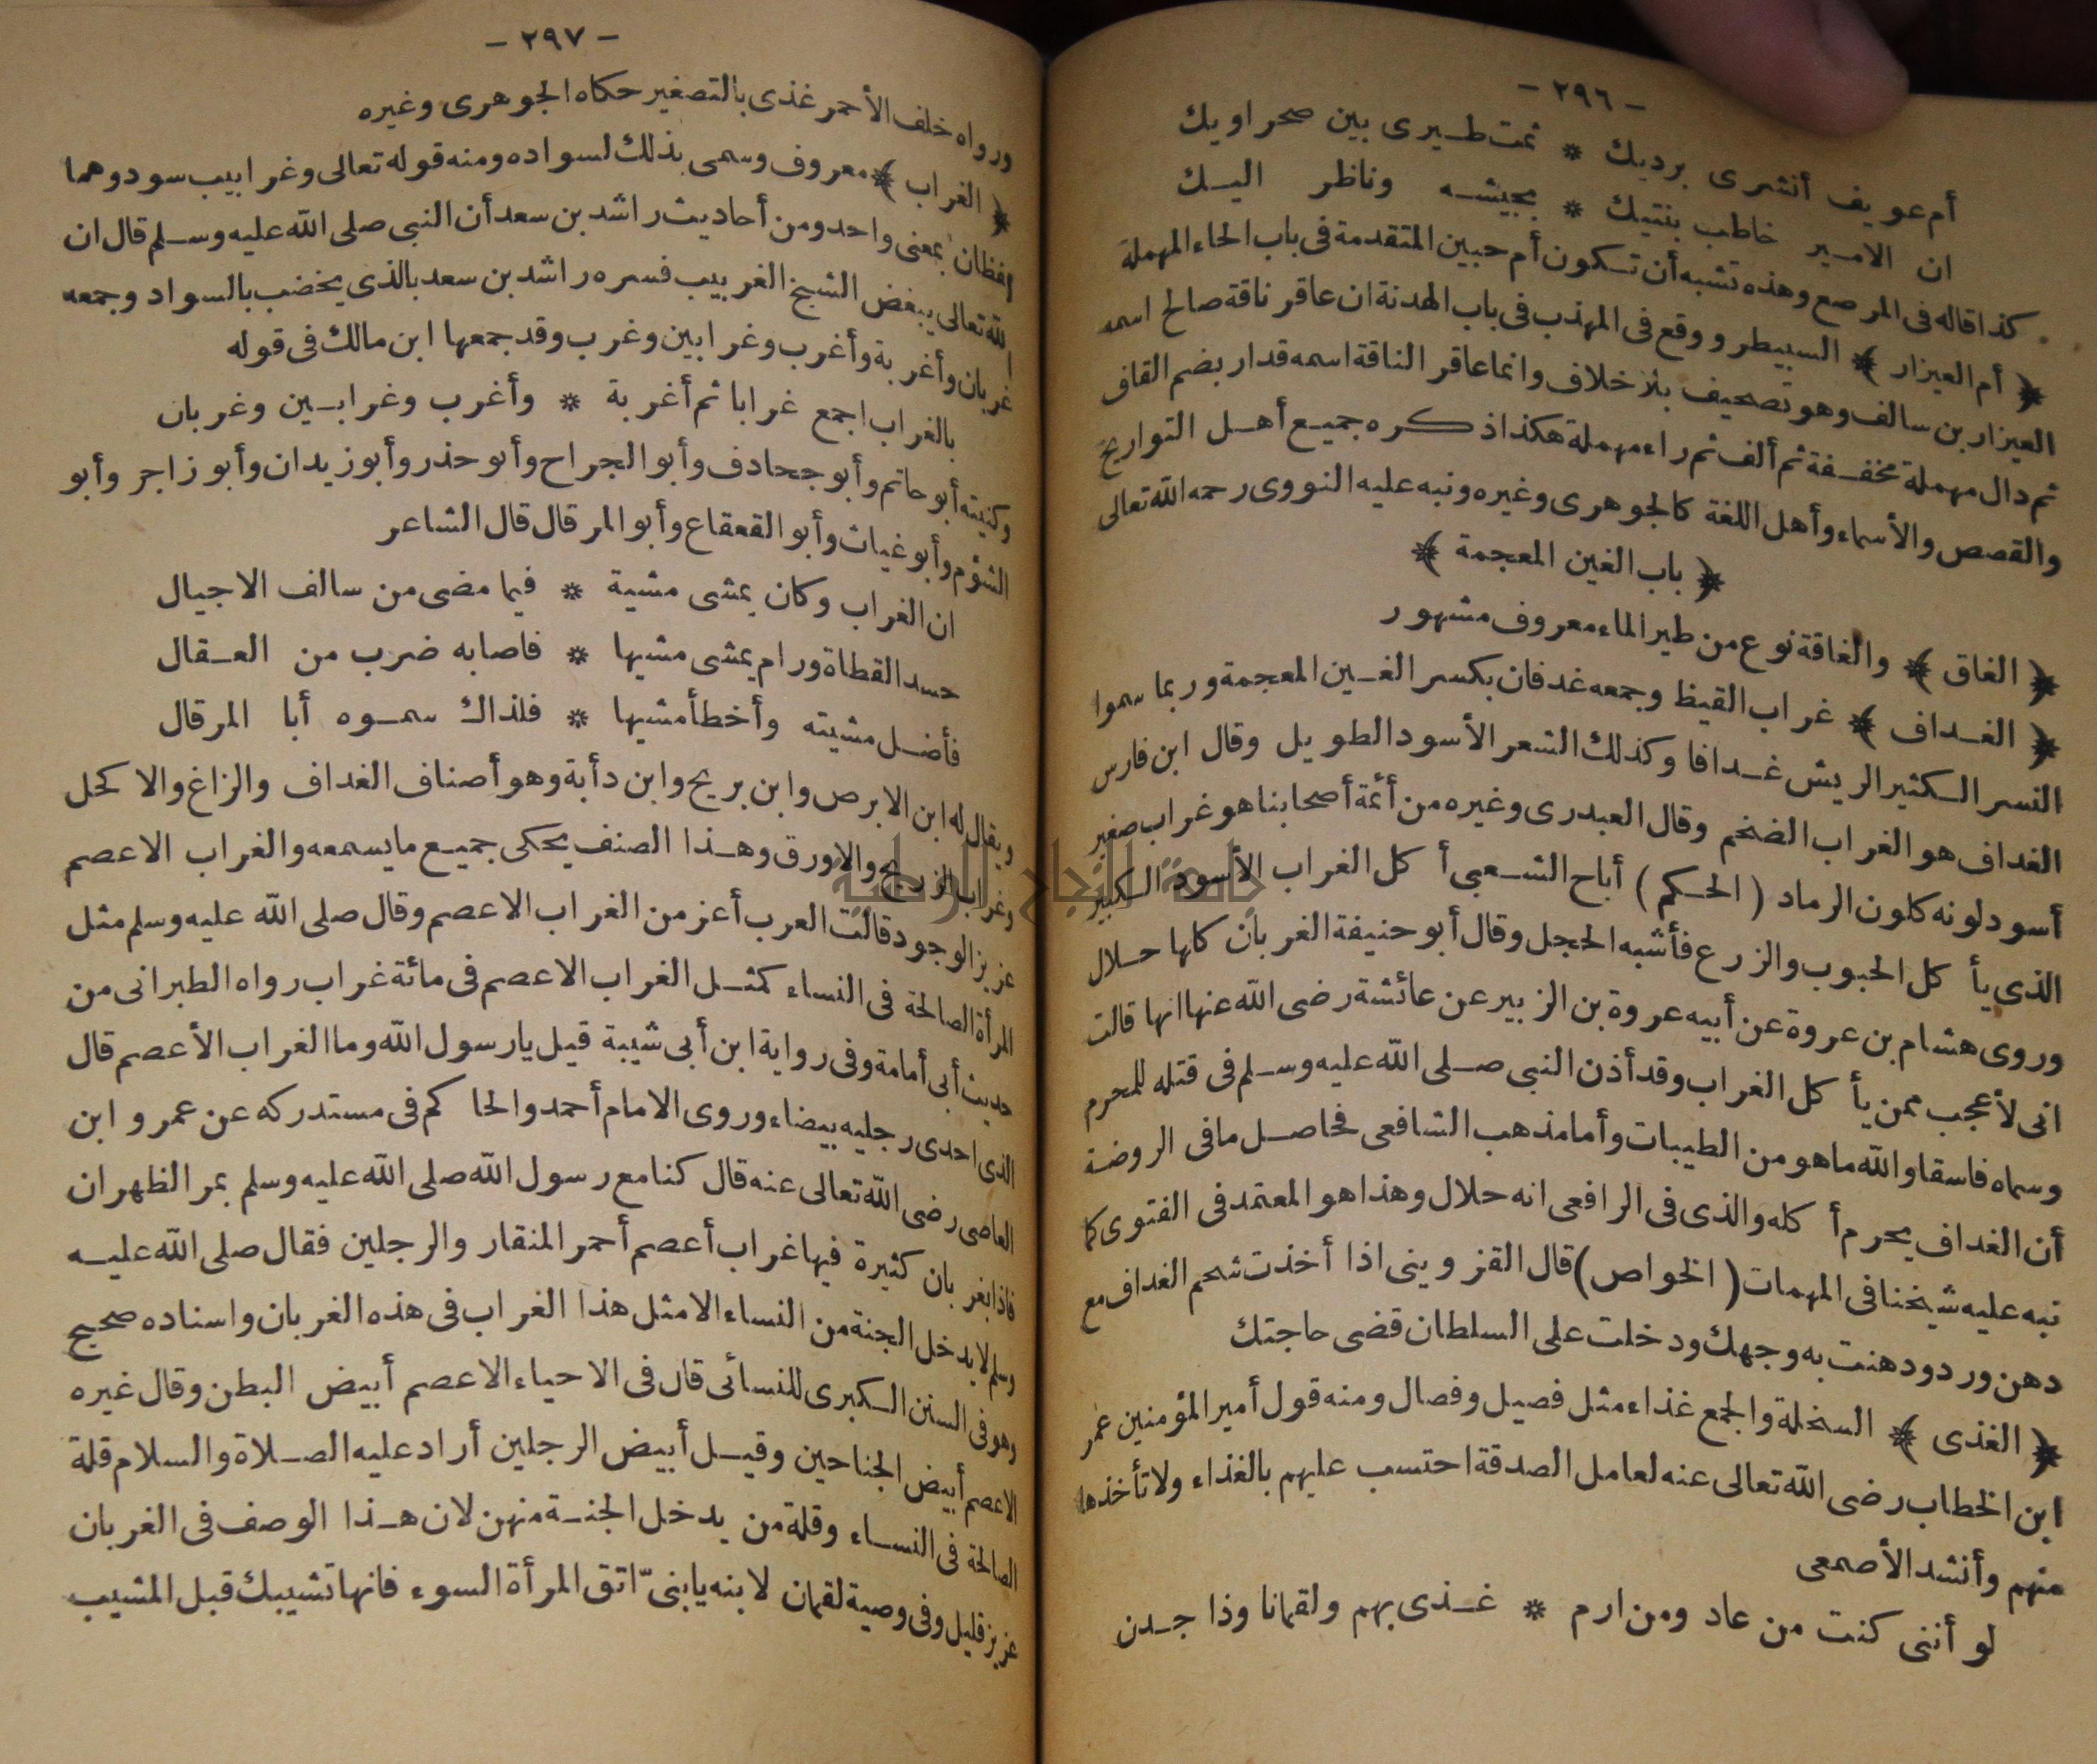 - ٢٩٦ -
أم عويف أنشرى برديك * ثمت طـيرى بين صحراويك
ان الامـير خاطب بنتيك * بجيشـه وناظر اليـك
كذا قاله فى المرصع وهذه تشبه أن تـكون أم حبين المتقدمة فى باب الحاء المهملة
﴿ أم العيزار ﴾ السبيطر ووقع فى المهذب فى باب الهدنة ان عاقر ناقة صالح اسمه
العيزار بن سالف وهو تصحيف بلا خلاف وانما عاقر الناقة اسمه قدار بضم القاف
ثم دال مهملة مخففـة ثم ألف ثم راء مهملة هكذا ذكره جميع أهـل التواريخ
والقصص والأسماء وأهل اللغة كالجوهرى وغيره ونبه عليه النووى رحمه الله تعالى
﴿ باب الغين المعجمة ﴾
﴿ الغاق ﴾ والغاقة نوع من طير الماء معروف مشهور
﴿ الغـداف ﴾ غراب القيظ وجمعه غدفان بكسر الغـين المعجمة وربما سموا
النسر الـكثير الريش غـدافا وكذلك الشعر الأسود الطويل وقال ابن فارس
الغداف هو الغراب الضخم وقال العبدرى وغيره من أئمة أصحابنا هو غراب صغير
أسود لونه كلون الرماد ( الحـكم ) أباح الشـعبى أكل الغراب الأسود الـكبير
الذى يأكل الحبوب والزرع فأشبه الحجل وقال أبو حنيفة الغربان كلها حـلال
وروى هشام بن عروة عن أبيه عروة بن الزبير عن عائشة رضى الله عنها انها قالت
انى لأعجب ممن يأكل الغراب وقد أذن النبى صـلى الله عليه وسـلم فى قتله للمحرم
وسماه فاسقا والله ما هو من الطيبات وأما مذهب الشافعى فحاصـل ما فى الروضة
أن الغداف يحرم أكله والذى فى الرافعى انه حلال وهذا هو المعتمد فى الفتوى كما
نبه عليه شيخنا فى المهمات ( الخواص ) قال القزوينى اذا أخذت شحم الغداف مع
دهن ورد ودهنت به وجهك ودخلت على السلطان قضى حاجتك
﴿ الغذى ﴾ السخلة والجمع غذاء مثل فصيل وفصال ومنه قول أمير المؤمنين عمر
ابن الخطاب رضى الله تعالى عنه لعامل الصدقة احتسب عليهم بالغذاء ولا تأخذها
منهم وأنشد الأصمعى
لو أننى كنت من عاد ومن ارم * غـذى بهم ولقمانا وذا جـدن
- ٢٩٧ -
ورواه خلف الأحمر غذى بالتصغير حكاه الجوهرى وغيره
﴿ الغراب ﴾ معروف وسمى بذلك لسواده ومنه قوله تعالى وغرابيب سود وهما
لفظان بمعنى واحد ومن أحاديث راشد بن سعد أن النبى صلى الله عليه وسـلم قال ان
الله تعالى يبغض الشيخ الغربيب فسره راشد بن سعد بالذى يخضب بالسواد وجمعه
غربان وأغربة وأغرب وغرابين وغرب وقد جمعها ابن مالك فى قوله
بالغراب اجمع غرابا ثم أغربة * وأغرب وغرابـين وغربان
وكنيته أبو حاتم وأبو جحادف وأبو الجراح وأبو حذر وأبو زيدان وأبو زاجر وأبو
الشؤم وأبو غياث وأبو القعقاع وأبو المرقال قال الشاعر
ان الغراب وكان يمشى مشية * فيما مضى من سالف الاجيال
حسد القطاة ورام يمشى مشيها * فاصابه ضرب من العـقال
فأضـل مشيته وأخطأ مشيها * فلذاك سمـوه أبا المرقال
ويقال له ابن الابرص وابن بريح وابن دأبة وهو أصناف الغداف والزاغ والاكحل
وغراب الزرع والاورق وهـذا الصنف يحكى جميع ما يسمعه والغراب الاعصم
عزيز الوجود قالت العرب أعز من الغراب الاعصم وقال صلى الله عليه وسلم مثل
المرأة الصالحة فى النساء كمثـل الغراب الاعصم فى مائة غراب رواه الطبرانى من
حديث أبى أمامة وفى رواية ابن أبى شيبة قيل يا رسول الله وما الغراب الأعصم قال
الذى احدى رجليه بيضاء وروى الامام أحمد والحاكم فى مستدركه عن عمرو ابن
العاصى رضى الله تعالى عنه قال كنا مع رسول الله صلى الله عليه وسلم بمر الظهران
فاذا بغربان كثيرة فيها غراب أعصم أحمر المنقار والرجلين فقال صلى الله عليـه
وسلم لا يدخل الجنة من النساء الا مثل هذا الغراب فى هذه الغربان واسناده صحيح
وهو فى السنن الـكبرى للنسائى قال فى الاحياء الاعصم أبيض البطن وقال غيره
الاعصم أبيض الجناحين وقيـل أبيض الرجلين أراد عليه الصـلاة والسلام قلة
الصالحة فى النسـاء وقلة من يدخل الجنـة منهن لان هـذا الوصف فى الغربان
عزيز قليل وفى وصية لقمان لابنه يا بنىّ اتق المرأة السوء فانها تشيبك قبل المشيب
جامعة النجاح الوطنية